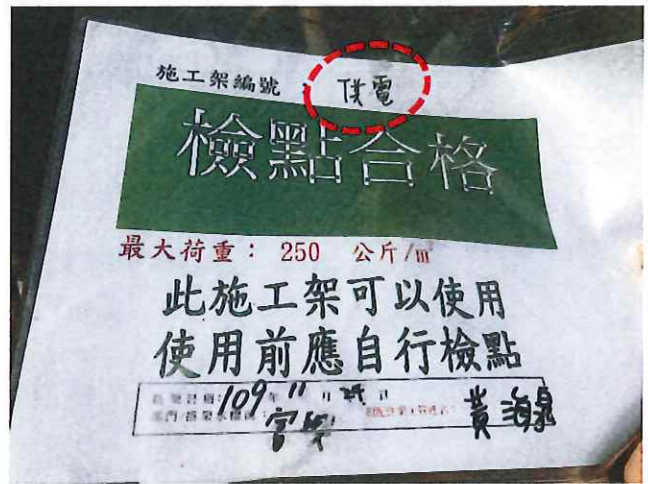 施工架編號 供電
檢點合格
最大荷重： 250 公斤/㎡
此施工架可以使用
使用前應自行檢點
109年11月
黃海泉